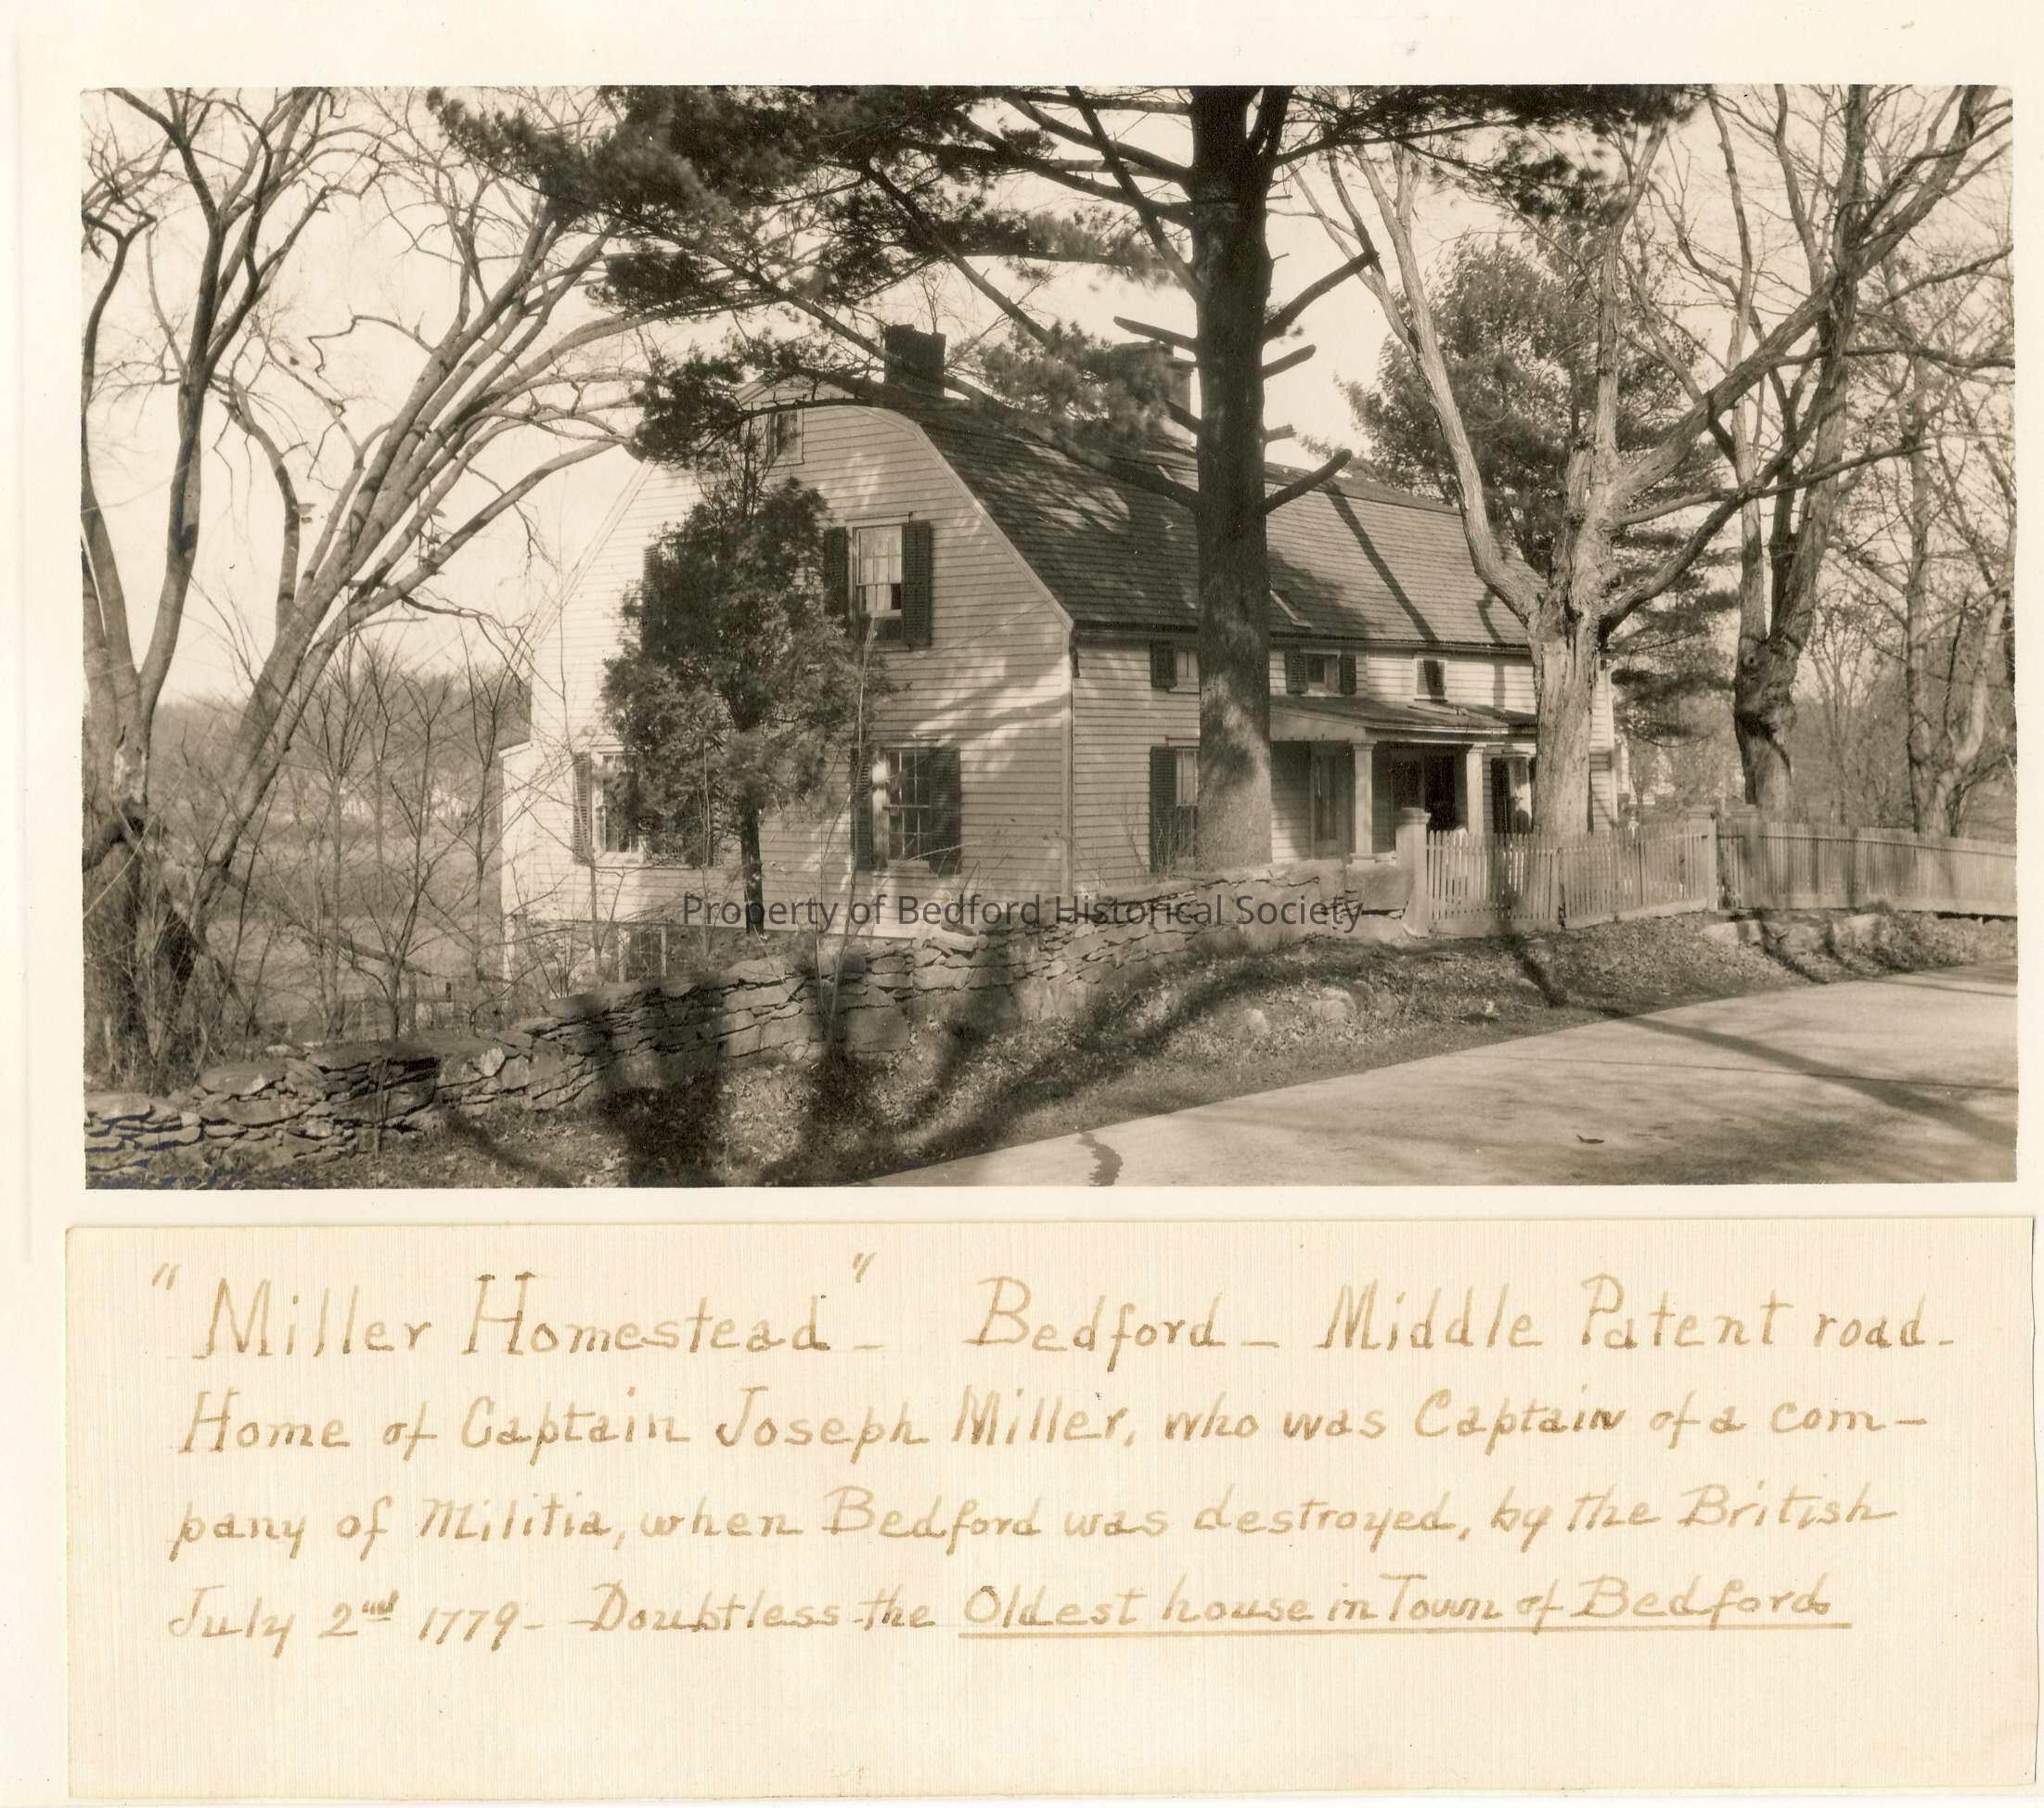 Property of Bedford Historical Society
"Miller Homestead" - Bedford - Middle Patent road -
Home of Captain Joseph Miller, who was Captain of a com-
pany of Militia, when Bedford was destroyed, by the British
July 2nd 1779 - Doubtless the Oldest house in Town of Bedford.